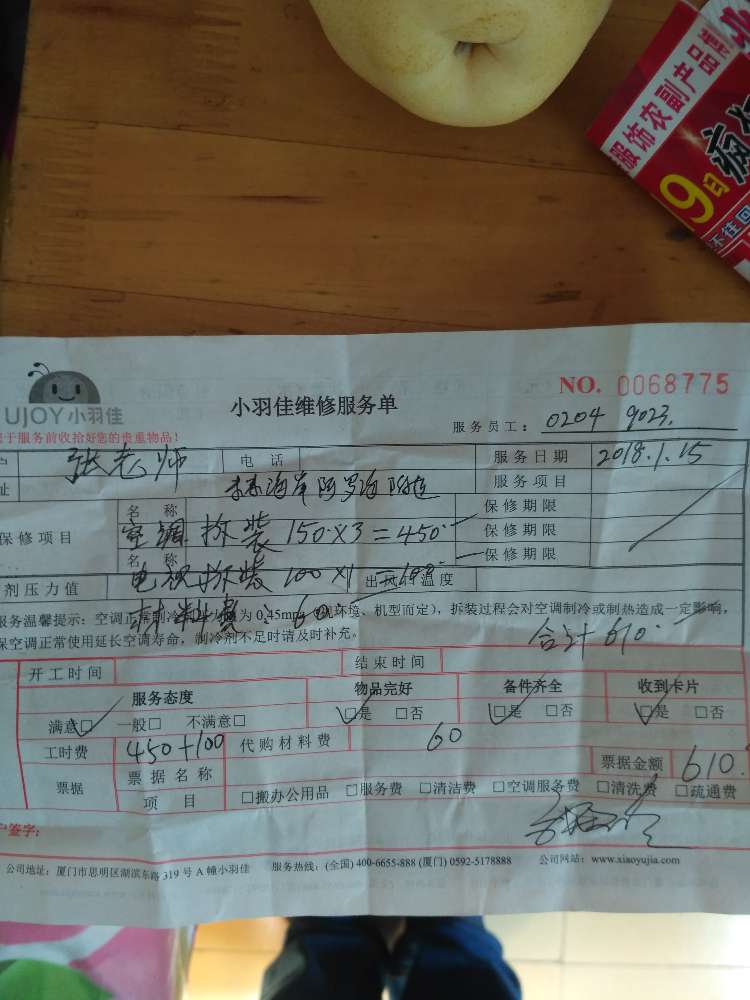 服饰农副产品
9日
不往回
UJOY小羽佳
小羽佳维修服务单
NO. 0068775
服务员工：0204 9023.
于服务前收拾好您的贵重物品！
户 张老师 电话 服务日期 2018.1.15
址 海岸阿罗海附近 服务项目
保修项目 名称 空调拆装 150×3=450 保修期限
保修期限
名称 电视拆装 100×1=100 保修期限
剂压力值 出风口温度
材料费 60
服务温馨提示：空调正常制冷 为 0.45mpa 视环境、机型而定），拆装过程会对空调制冷或制热造成一定影响，
保空调正常使用延长空调寿命，制冷剂不足时请及时补充。
合计 610.
开工时间 结束时间
服务态度 物品完好 备件齐全 收到卡片
满意☑ 一般□ 不满意□ ☑是 □否 ☑是 □否 ☑是 □否
工时费 450+100 代购材料费 60
票据 票据名称 票据金额 610.
项目 □搬办公用品 □服务费 □清洁费 □空调服务费 □清洗费 □疏通费
户签字：
公司地址：厦门市思明区湖滨东路 319 号 A 幢小羽佳 服务热线：(全国) 400-6655-888 (厦门) 0592-5178888 公司网站：www.xiaoyujia.com